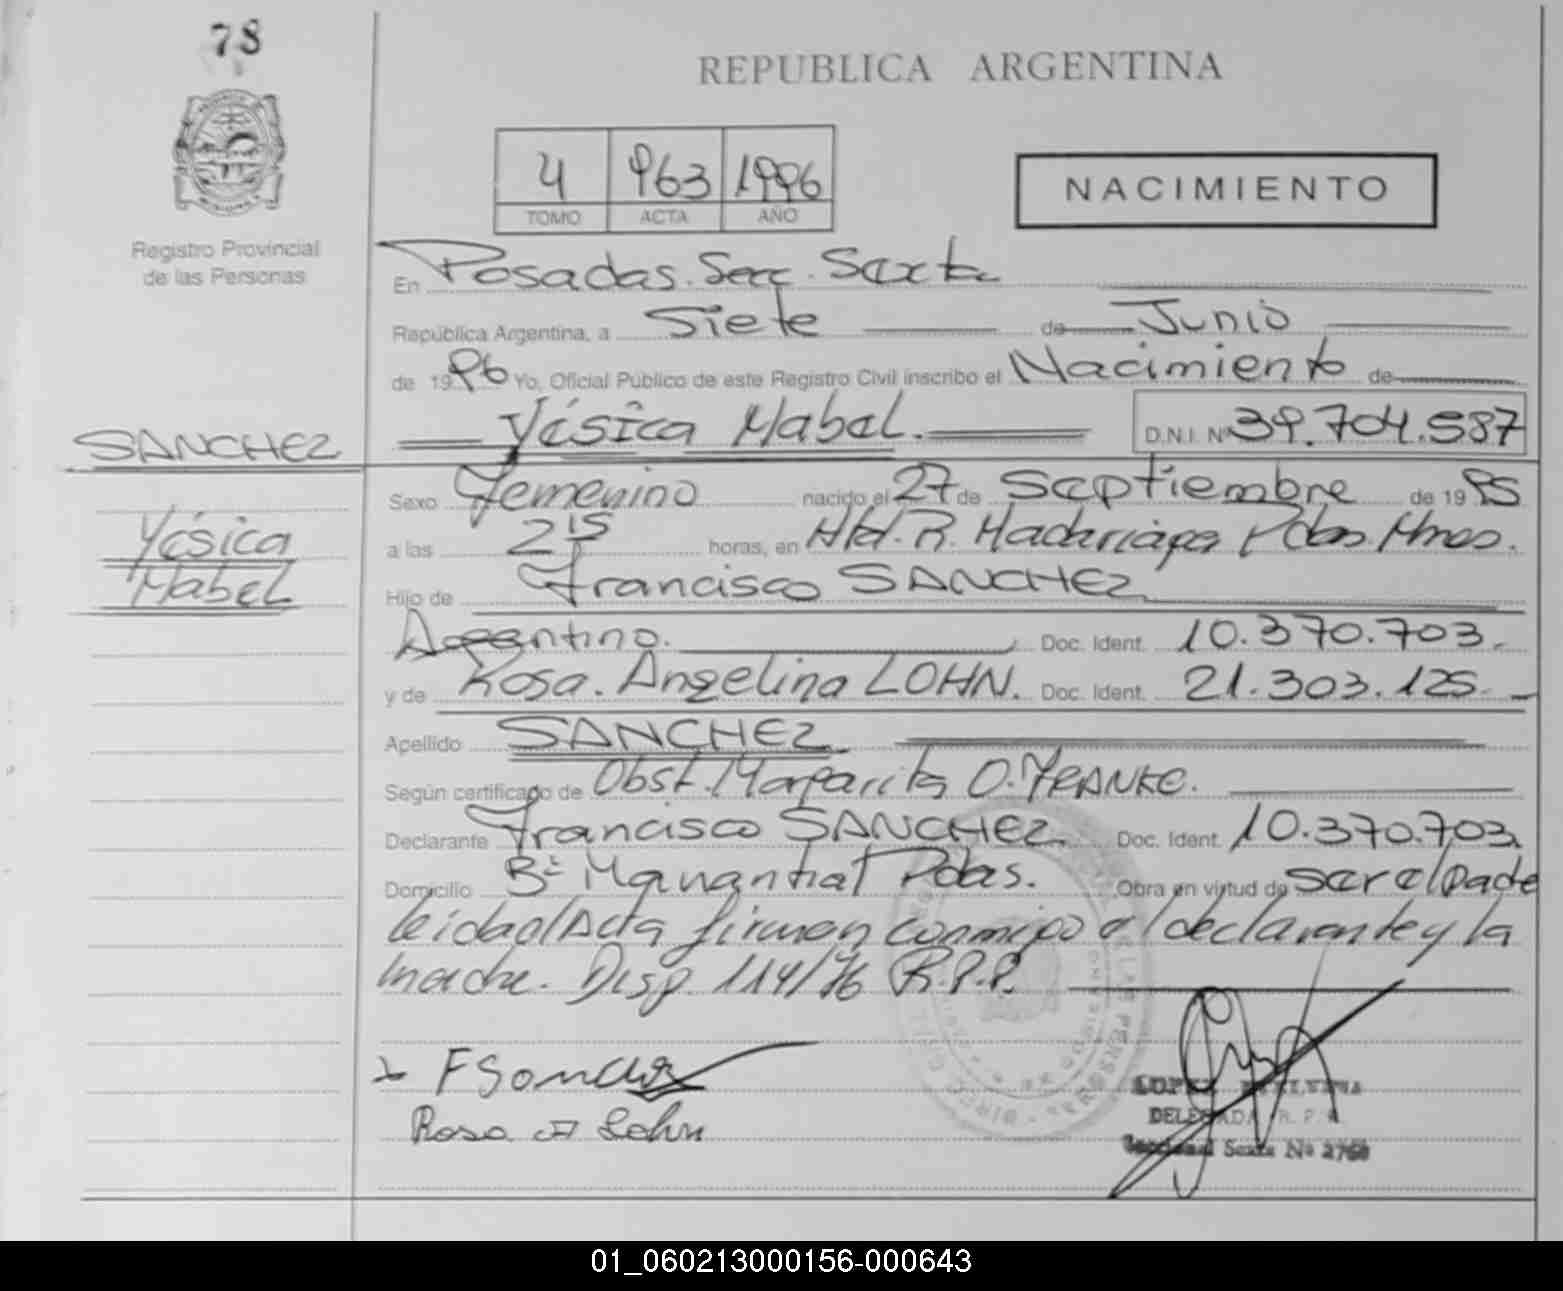 78
REPUBLICA ARGENTINA
4 963 1996
TOMO ACTA AÑO
NACIMIENTO
Registro Provincial
de las Personas
En Posadas. Secc. Sexta
República Argentina, a Siete de Junio
de 1996 Yo, Oficial Público de este Registro Civil inscribo el Nacimiento de
SANCHEZ
Yésica Mabel. D.N.I. Nº 39.704.587
Sexo Femenino nacido el 27 de Septiembre de 1995
Yésica
Mabel
a las 2 15 horas, en Htal. R. Madariaga Pdas. Mnes.
Hijo de Francisco SANCHEZ
Argentino. Doc. Ident. 10.370.703.-
y de Rosa. Angelina LOHN. Doc. Ident. 21.303.125.-
Apellido SANCHEZ
Según certificado de Obst. Margarita O. FRANKE.
Declarante Francisco SANCHEZ. Doc. Ident. 10.370.703.
Domicilio Bº Manantial Pdas. Obra en virtud de ser el padre
leida el Acta firman conmigo el declarante y la
madre. Disp. 114/76 R.P.P.
F Sanchez
Rosa A Lohn
LOPEZ
DELEGADA R. P. P.
Seccional Sexta Nº 2760
01_060213000156-000643